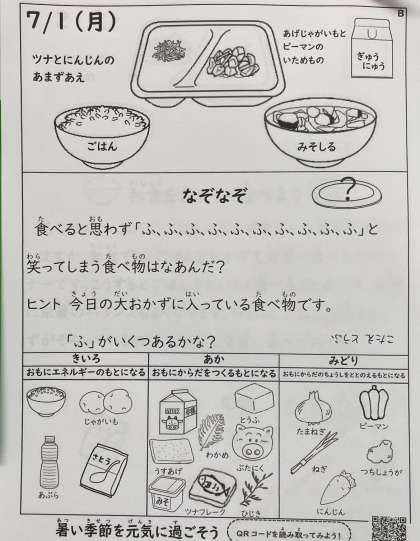 B
7/1（月）
ツナとにんじんの
あまずあえ
あげじゃがいもと
ピーマンの
いためもの
ぎゅう
にゅう
ごはん
みそしる
なぞなぞ
?
食べると思わず「ふ、ふ、ふ、ふ、ふ、ふ、ふ、ふ、ふ、ふ」と
笑ってしまう食べ物はなあんだ？
ヒント 今日の大おかずに入っている食べ物です。
「ふ」がいくつあるかな？
こたえ とうふ
きいろ
おもにエネルギーのもとになる
じゃがいも
あぶら
さとう
あか
おもにからだをつくるもとになる
とうふ
わかめ
うすあげ
ぶたにく
みそ
ツナフレーク
ひじき
みどり
おもにからだのちょうしをととのえるもとになる
たまねぎ
ピーマン
ねぎ
つちしょうが
にんじん
暑い季節を元気に過ごそう
QRコードを読み取ってみよう！